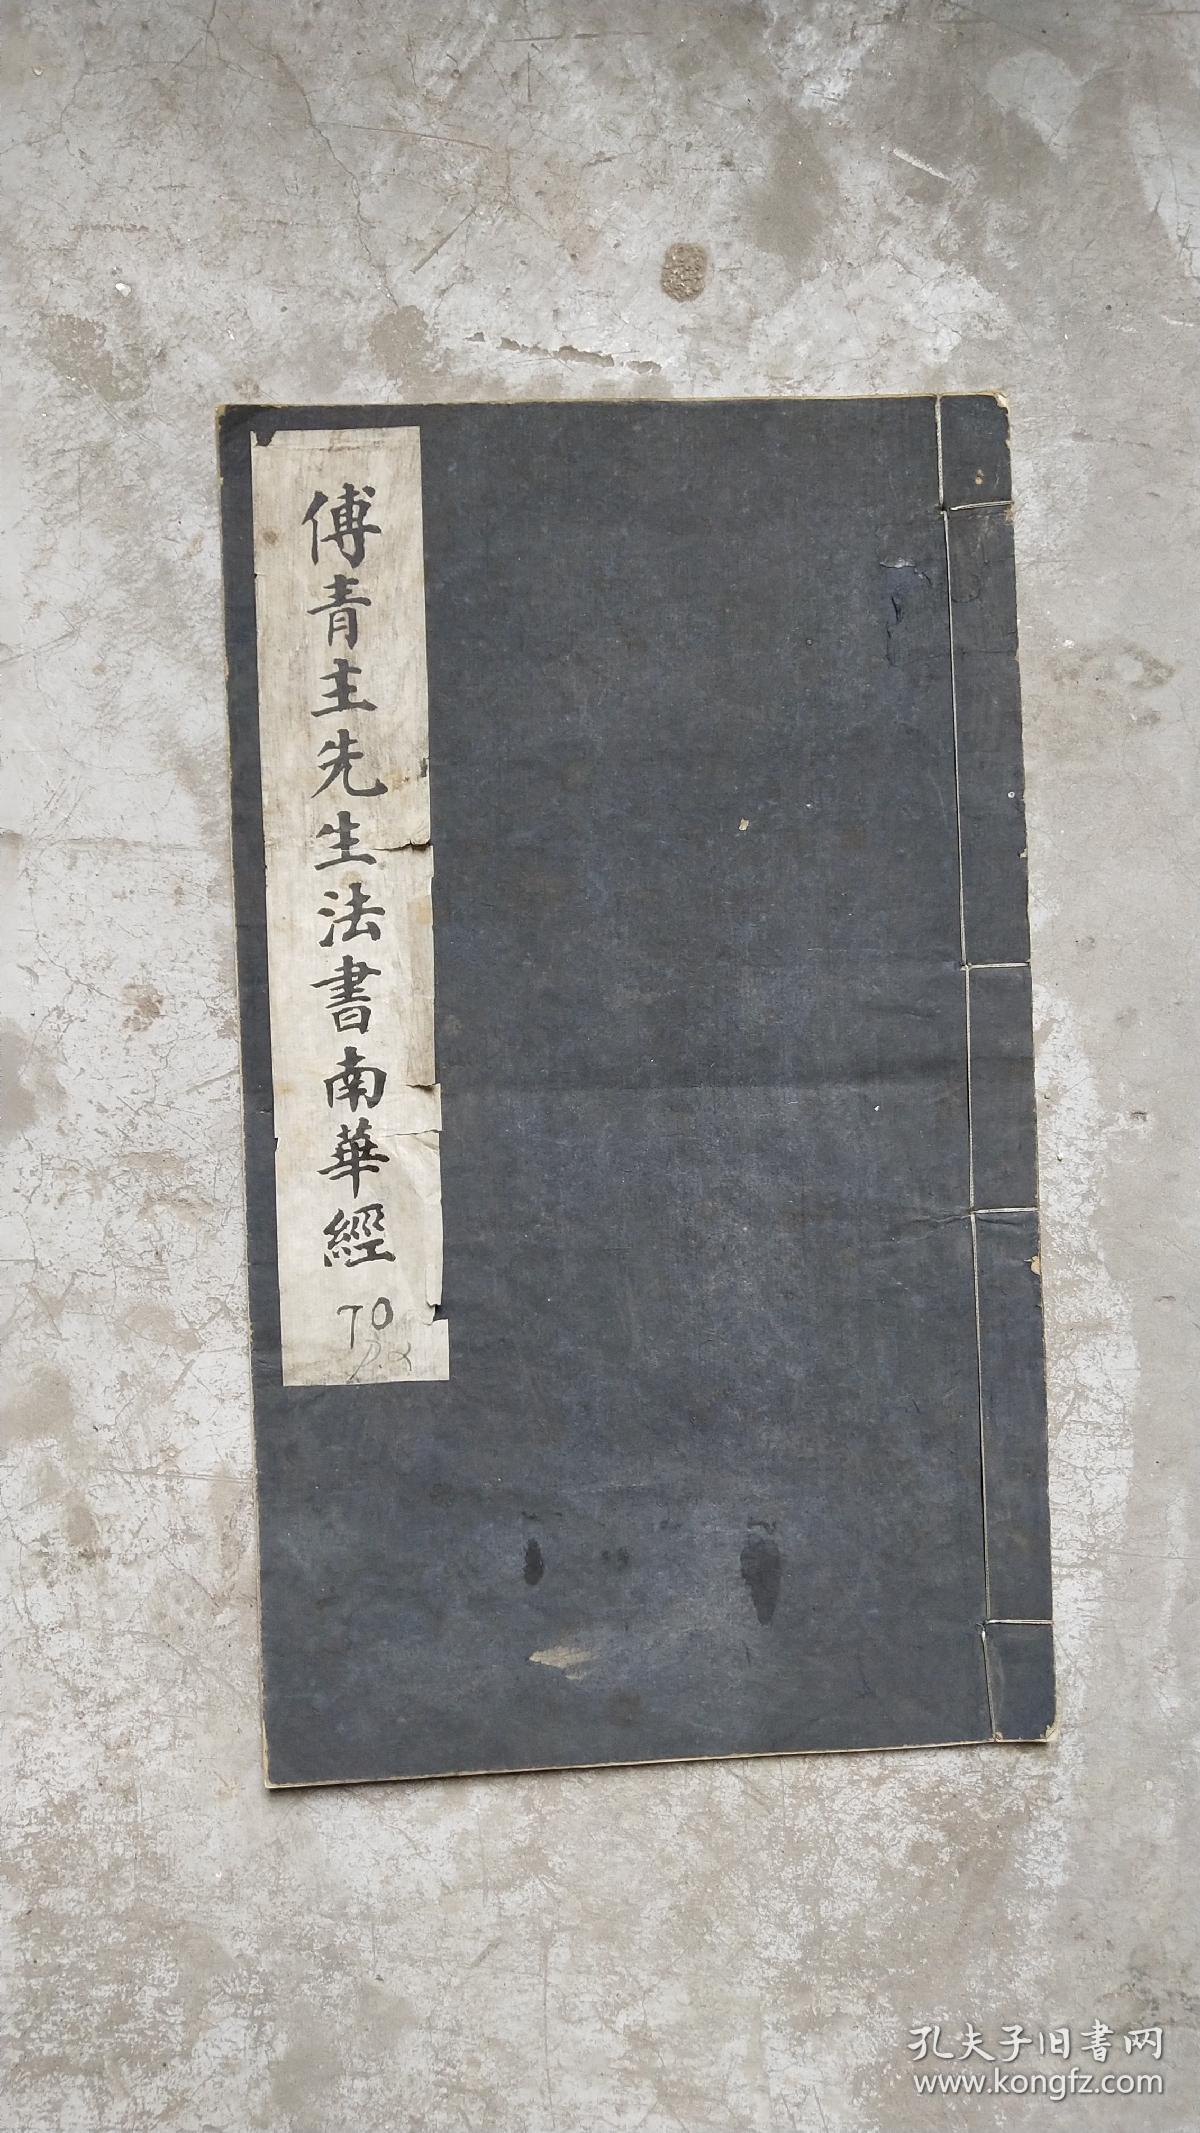 傅青主先生法書南華經
70
孔夫子旧書网
www.kongfz.com